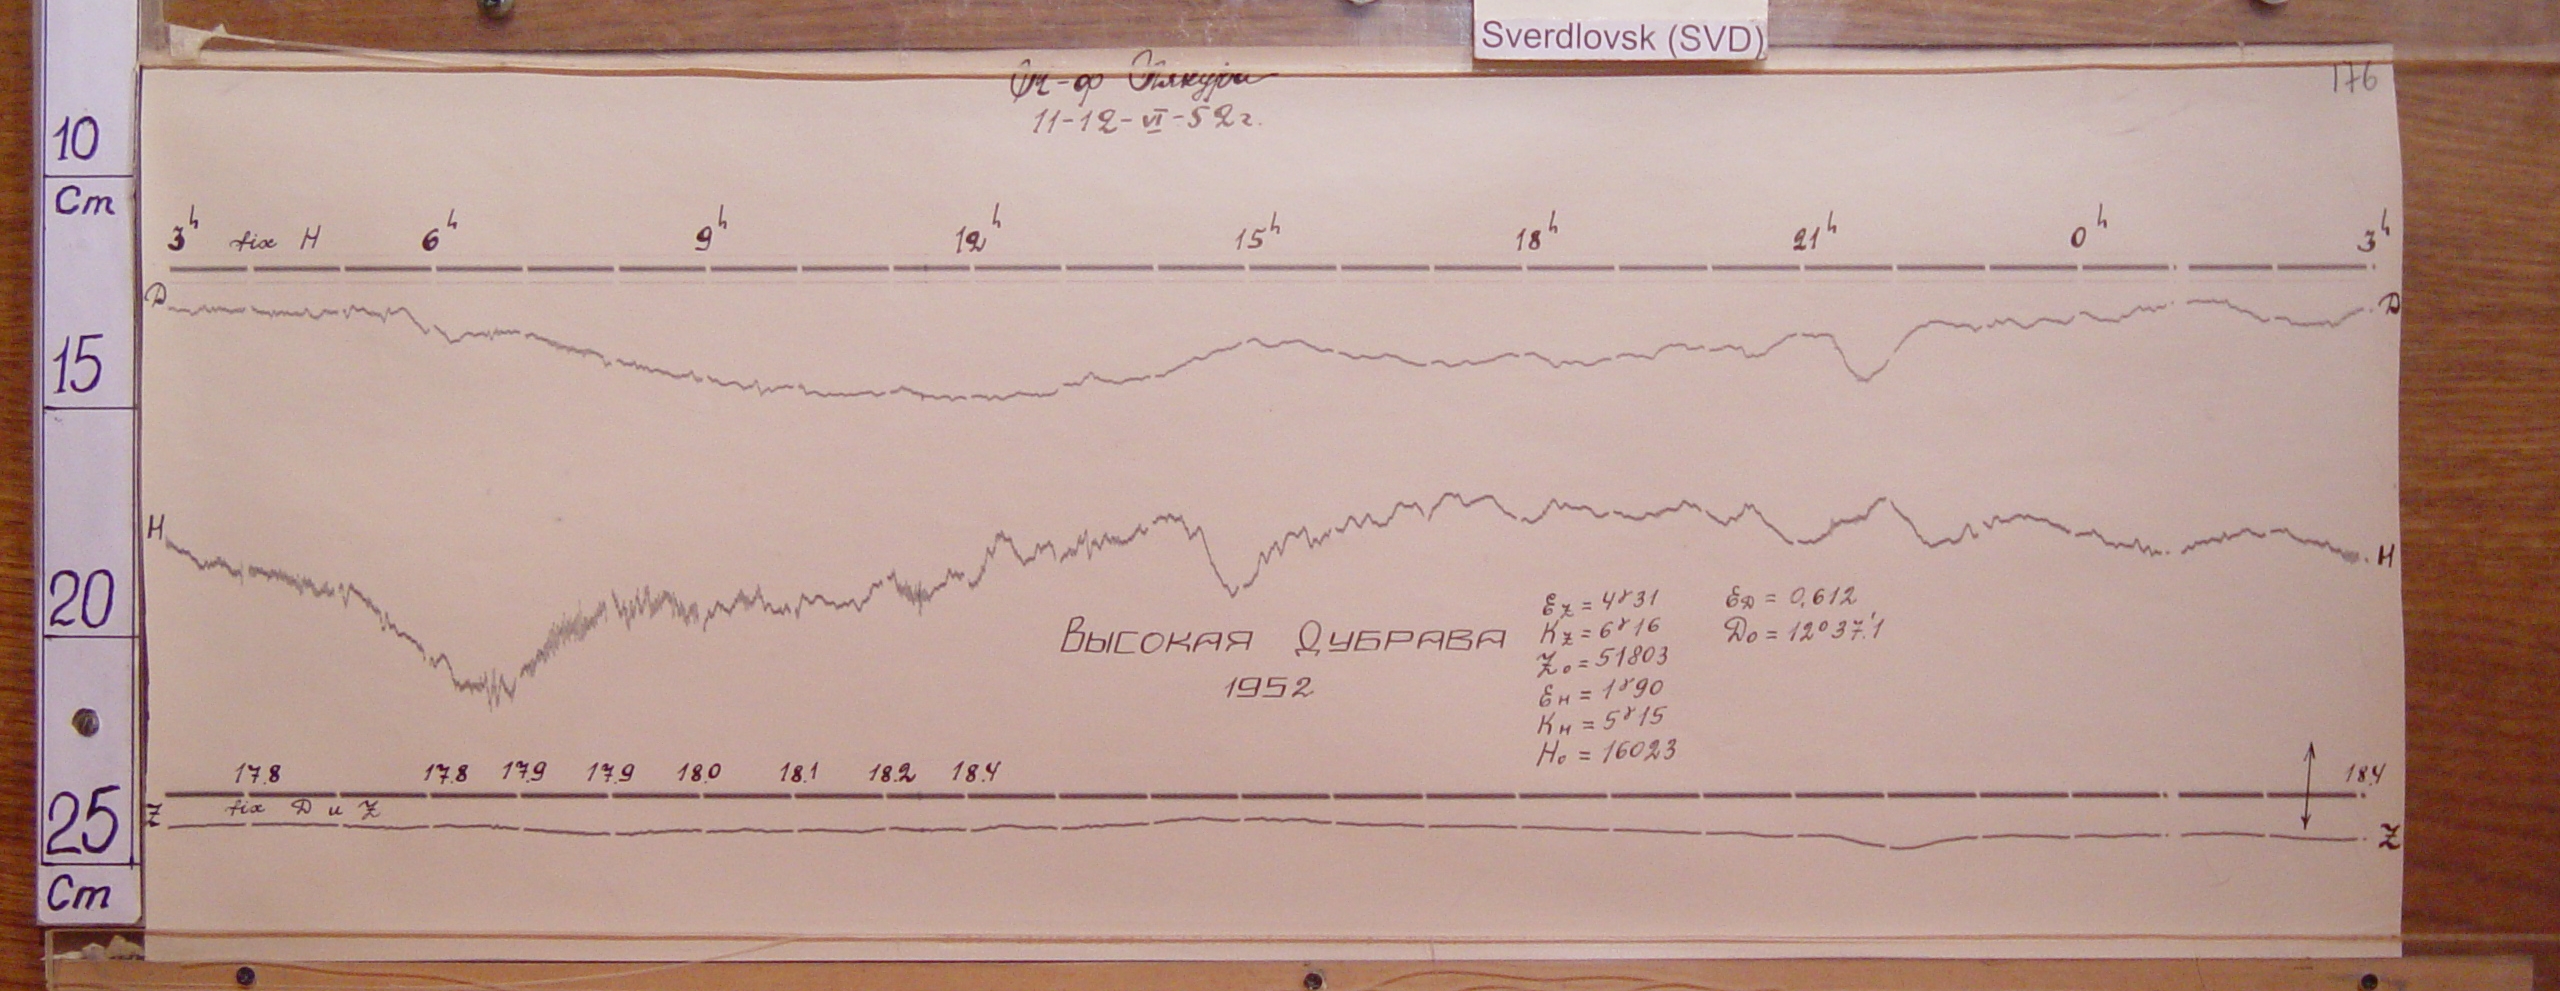 Sverdlovsk (SVD)
176
11-12-VI-52 г.
10
Cm
15
20
25
Cm
3h fix H 6h 9h 12h 15h 18h 21h 0h 3h
D D
H H
ВЫСОКАЯ ДУБРАВА
1952
Ez = 4γ31
Kz = 6γ16
Z₀ = 51803
Eн = 1γ90
Kн = 5γ15
H₀ = 16023
ED = 0,612
D₀ = 12°37'.1
17.8 17.8 17.9 17.9 18.0 18.1 18.2 18.4 18.4
Z fix D и Z Z